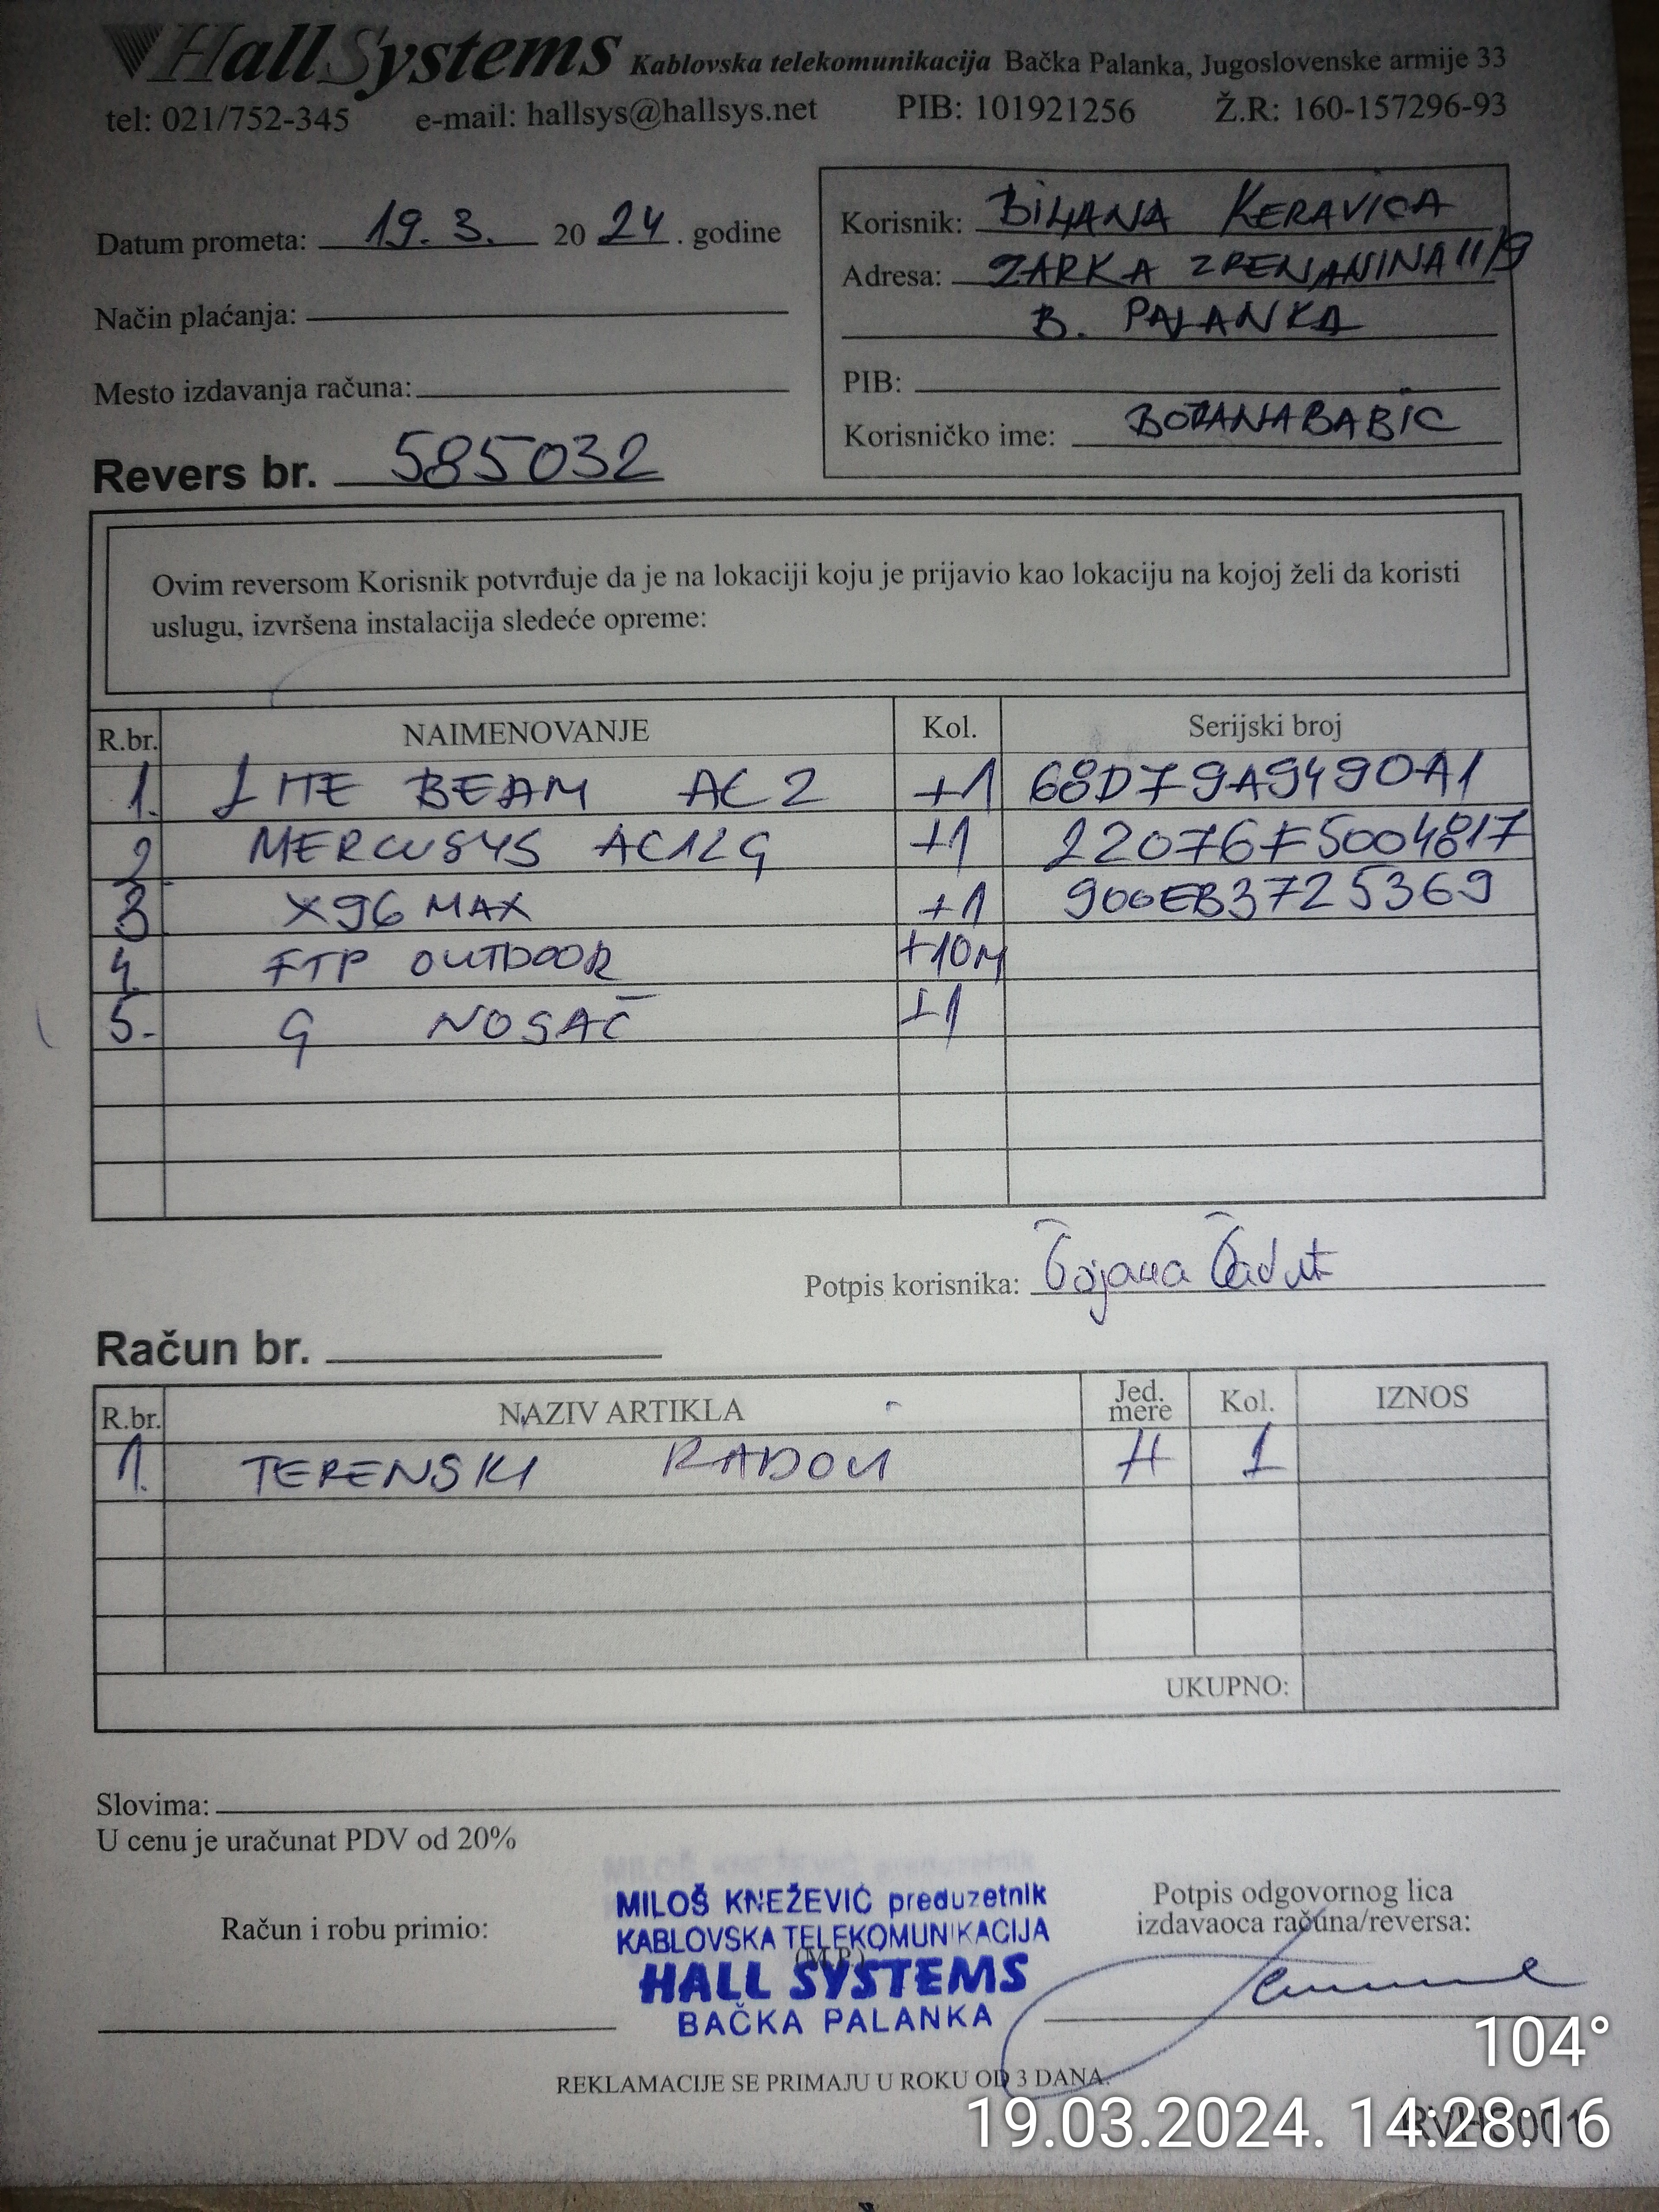 HallSystems Kablovska telekomunikacija Bačka Palanka, Jugoslovenske armije 33
tel: 021/752-345 e-mail: hallsys@hallsys.net PIB: 101921256 Ž.R: 160-157296-93
Datum prometa: 19. 3. 20 24. godine
Način plaćanja:
Mesto izdavanja računa:
Revers br. 585032
Korisnik: BILJANA KERAVICA
Adresa: ŽARKA ZRENJANINA 11/9
B. PALANKA
PIB:
Korisničko ime: BOJANABABIC
Ovim reversom Korisnik potvrđuje da je na lokaciji koju je prijavio kao lokaciju na kojoj želi da koristi
uslugu, izvršena instalacija sledeće opreme:
R.br. NAIMENOVANJE Kol. Serijski broj
1. LITE BEAM AC 2 +1 68D79A9490A1
2 MERCUSYS AC12G +1 22076F5004817
3 X96 MAX +1 900EB3725369
4. FTP OUTDOOR +10M
5. G NOSAČ +1
Potpis korisnika:
Račun br.
R.br. NAZIV ARTIKLA Jed. mere Kol. IZNOS
1. TERENSKI RADOVI H 1
UKUPNO:
Slovima:
U cenu je uračunat PDV od 20%
Račun i robu primio:
MILOŠ KNEŽEVIĆ preduzetnik
KABLOVSKA TELEKOMUNIKACIJA
(M.P.)
HALL SYSTEMS
BAČKA PALANKA
Potpis odgovornog lica
izdavaoca računa/reversa:
REKLAMACIJE SE PRIMAJU U ROKU OD 3 DANA.
104°
19.03.2024. 14:28:16